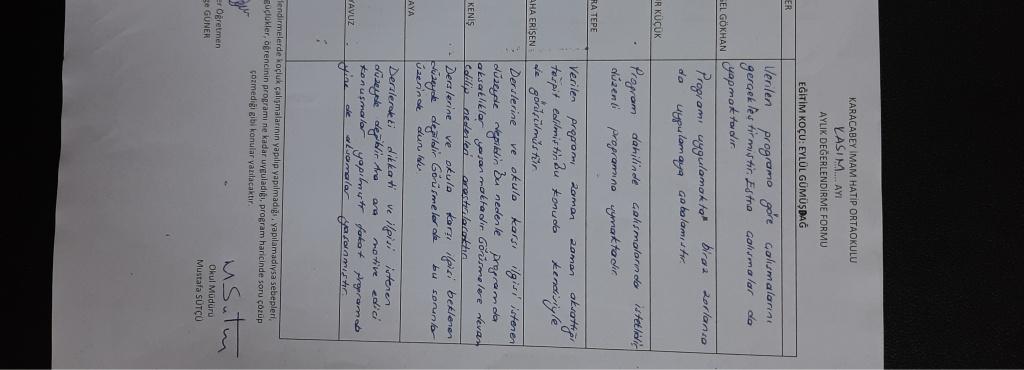 KARACABEY İMAM HATİP ORTAOKULU
KASIM... AYI
AYLIK DEĞERLENDİRME FORMU
EĞİTİM KOÇU: EYLÜL GÜMÜŞDAĞ
ER
SEL GÖKHAN
Verilen programa göre çalışmalarını
gerçekleştirmiştir. Extra çalışmalar da
yapmaktadır.
R KÜÇÜK
Programı uygulamakta biraz zorlansa
da uygulamaya çabalamıştır.
RA TEPE
Program dahilinde çalışmalarında isteklidir
düzenli programına uymaktadır.
AHA ERİŞEN
Verilen programı zaman zaman aksattığı
tespit edilmiştir. Bu konuda kendisiyle
de görüşülmüştür.
KENİŞ
Derslerine ve okula karşı ilgisi istenen
düzeyde değildir. Bu nedenle programda
aksaklıklar yaşanmaktadır. Görüşmelere devam
edilip nedenleri araştırılacaktır.
AYA
Derslerine ve okula karşı ilgisi beklenen
düzeyde değildir. Görüşmelerde bu sorunlar
üzerinde duruldu.
YAVUZ
Derslerdeki dikkati ve ilgisi istenen
düzeyde değildir. Ara ara motive edici
konuşmalar yapılmıştır fakat programda
yine de aksamalar yaşanmıştır.
lendirmelerde koçluk çalışmalarının yapılıp yapılmadığı, yapılamadıysa sebepleri,
güçlükler, öğrencinin programı ne kadar uyguladığı, program haricinde soru çözüp
çözmediği gibi konular yazılacaktır.
er Öğretmen
ge GÜNER
Okul Müdürü
Mustafa SÜTÇÜ